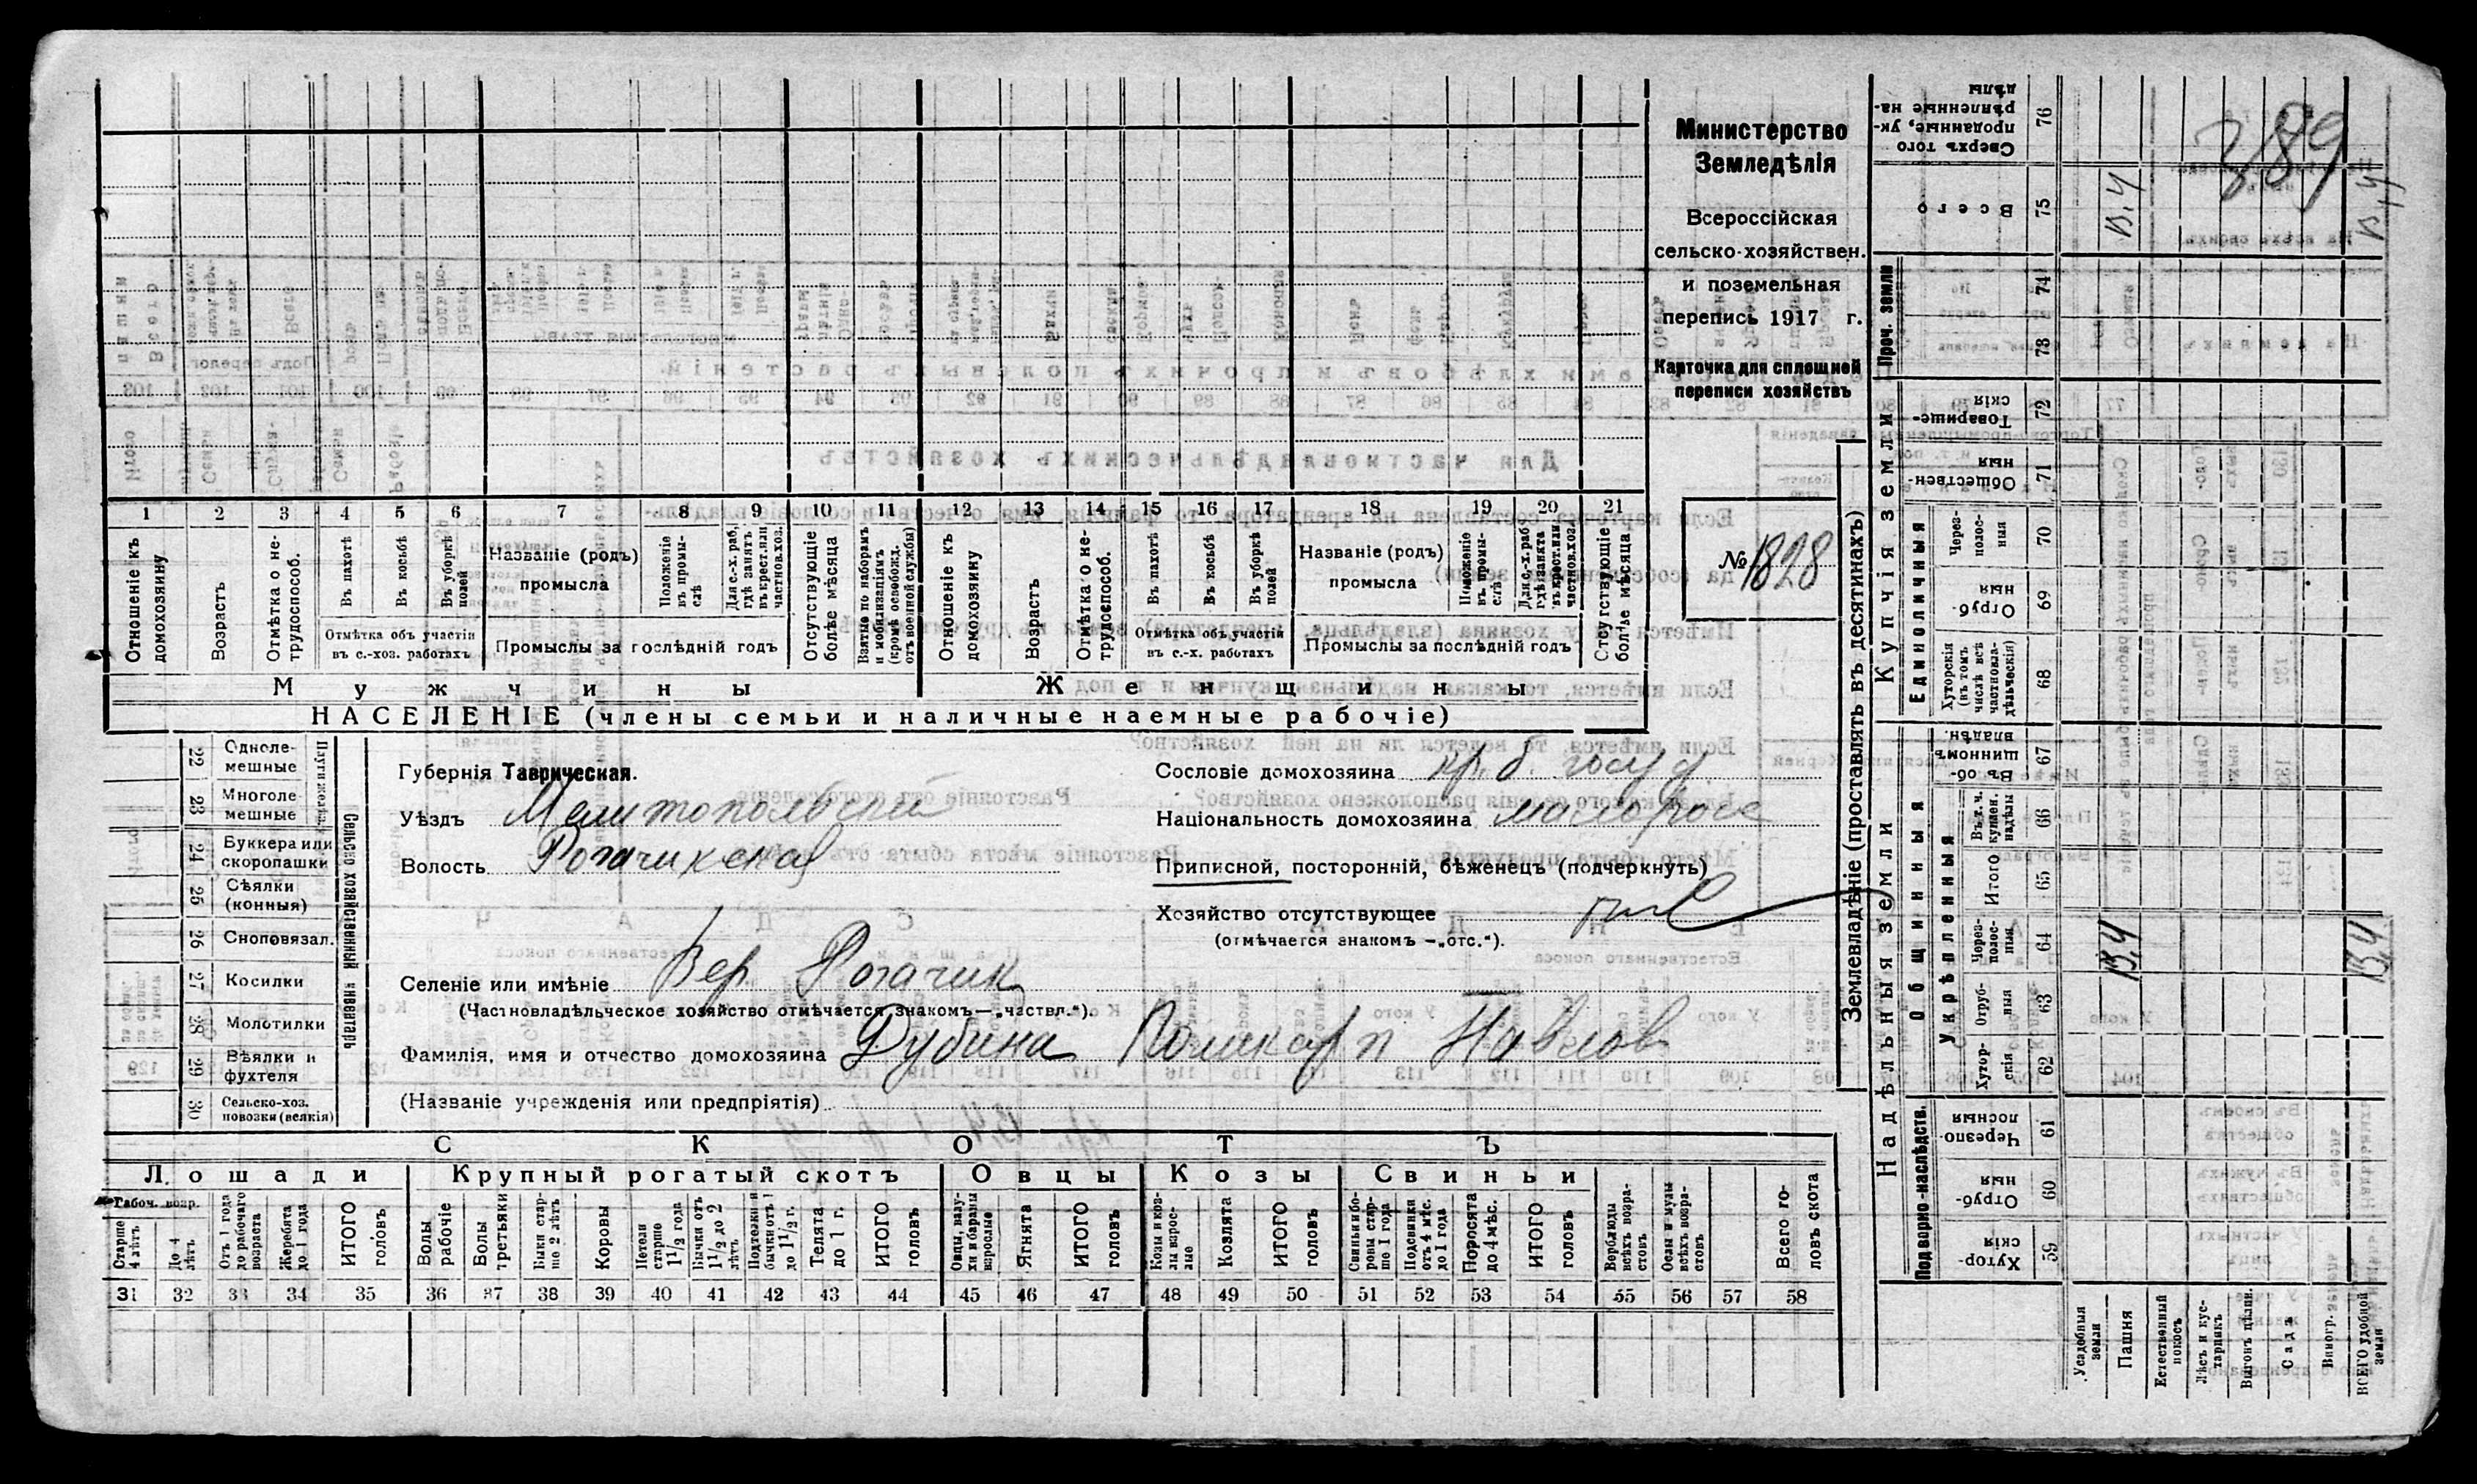 Министерство
Земледѣлія
Всероссійская
сельско-хозяйствен.
и поземельная
перепись 1917 г.
Карточка для сплошной
переписи хозяйствъ
№ 1828
389
1 2 3 4 5 6 7 8 9 10 11 12 13 14 15 16 17 18 19 20 21
Отношеніе къ домохозяину
Возрастъ
Отмѣтка о нетрудоспособ.
Въ пахотѣ
Въ косьбѣ
Въ уборкѣ полей
Отмѣтка объ участіи въ с.-хоз. работахъ
Названіе (родъ) промысла
Положеніе въ промыслѣ
Для с.-х. раб. гдѣ занятъ въ крест. или частнов. хоз.
Промыслы за послѣдній годъ
Отсутствующіе болѣе мѣсяца
Взятые по наборамъ и мобилизаціямъ (кромѣ освобожд. отъ военной службы)
Отношеніе къ домохозяину
Возрастъ
Отмѣтка о нетрудоспособ.
Въ пахотѣ
Въ косьбѣ
Въ уборкѣ полей
Отмѣтка объ участіи въ с.-х. работахъ
Названіе (родъ) промысла
Положеніе въ промыслѣ
Для с.-х. раб. гдѣ занята въ крест. или частнов. хоз.
Промыслы за послѣдній годъ
Отсутствующіе болѣе мѣсяца
Мужчины Женщины
НАСЕЛЕНІЕ (члены семьи и наличные наемные рабочіе)
22 Однолемешные
23 Многолемешные
24 Буккера или скоропашки
25 Сѣялки (конныя)
26 Сноповязал.
27 Косилки
28 Молотилки
29 Вѣялки и фухтеля
30 Сельско-хоз. повозки (всякія)
Сельско хозяйственный инвентарь
Губернія Таврическая.
Уѣздъ Мелитопольский
Волость Рогачикская
Сословіе домохозяина кр. б. госуд.
Національность домохозяина малоросс
Приписной, посторонній, бѣженецъ (подчеркнуть)
Хозяйство отсутствующее
(отмѣчается знакомъ —„отс.“).
Селеніе или имѣніе Вер. Рогачик
(Частновладѣльческое хозяйство отмѣчается знакомъ—„частвл.“).
Фамилія, имя и отчество домохозяина Дубина Поликарп Павлов
(Названіе учрежденія или предпріятія)
СКОТЪ
Лошади Крупный рогатый скотъ Овцы Козы Свиньи
Рабоч. возр.
Старше 4 лѣтъ
До 4 лѣтъ
Отъ 1 года до рабочаго возраста
Жеребята до 1 года
ИТОГО головъ
Волы рабочіе
Волы третьяки
Быки старше 2 лѣтъ
Коровы
Нетели старше 1 1/2 года
Бычки отъ 1 1/2 до 2 лѣтъ
Подтелки и бычки отъ 1 до 1 1/2 г.
Телята до 1 г.
ИТОГО головъ
Овцы, валухи и бараны взрослые
Ягнята
ИТОГО головъ
Козы и козлы взрослые
Козлята
ИТОГО головъ
Свиньи и боровы старше 1 года
Подсвинки отъ 4 мѣс. до 1 года
Поросята до 4 мѣс.
ИТОГО головъ
Верблюды всѣхъ возрастовъ
Ослы и мулы всѣхъ возрастовъ
Всего головъ скота
31 32 33 34 35 36 37 38 39 40 41 42 43 44 45 46 47 48 49 50 51 52 53 54 55 56 57 58
Землевладѣніе (проставлять въ десятинахъ)
Купчія земли
Надѣльныя земли
Проч. земли
Единоличныя
Общинныя
Укрѣпленныя
Подворно-наслѣдств.
Сверхъ того проданные, укрѣпленные надѣлы 76
Всего 75 13,4 13,4
74
73
Товарищескія 72
Общественныя 71
Черезполосныя 70
Отрубныя 69
Хуторскія (въ томъ числѣ всѣ частновладѣльческія) 68
Въ общинномъ владѣн. 67
Въ т. ч. куплен. надѣлы 66
Итого 65
Черезполосныя 64 13,4 13,4
Отрубныя 63
Хуторскія 62
Черезполосныя 61
Отрубныя 60
Хуторскія 59
Усадебныя земли
Пашня
Естественный покосъ
Лѣсъ и кустарникъ
Выгонъ цѣлин.
Садъ
Виногр.
ВСЕГО удобной земли